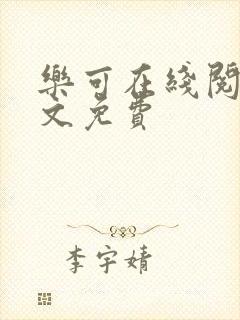 樂可在綫閱
文免費
李宇婧